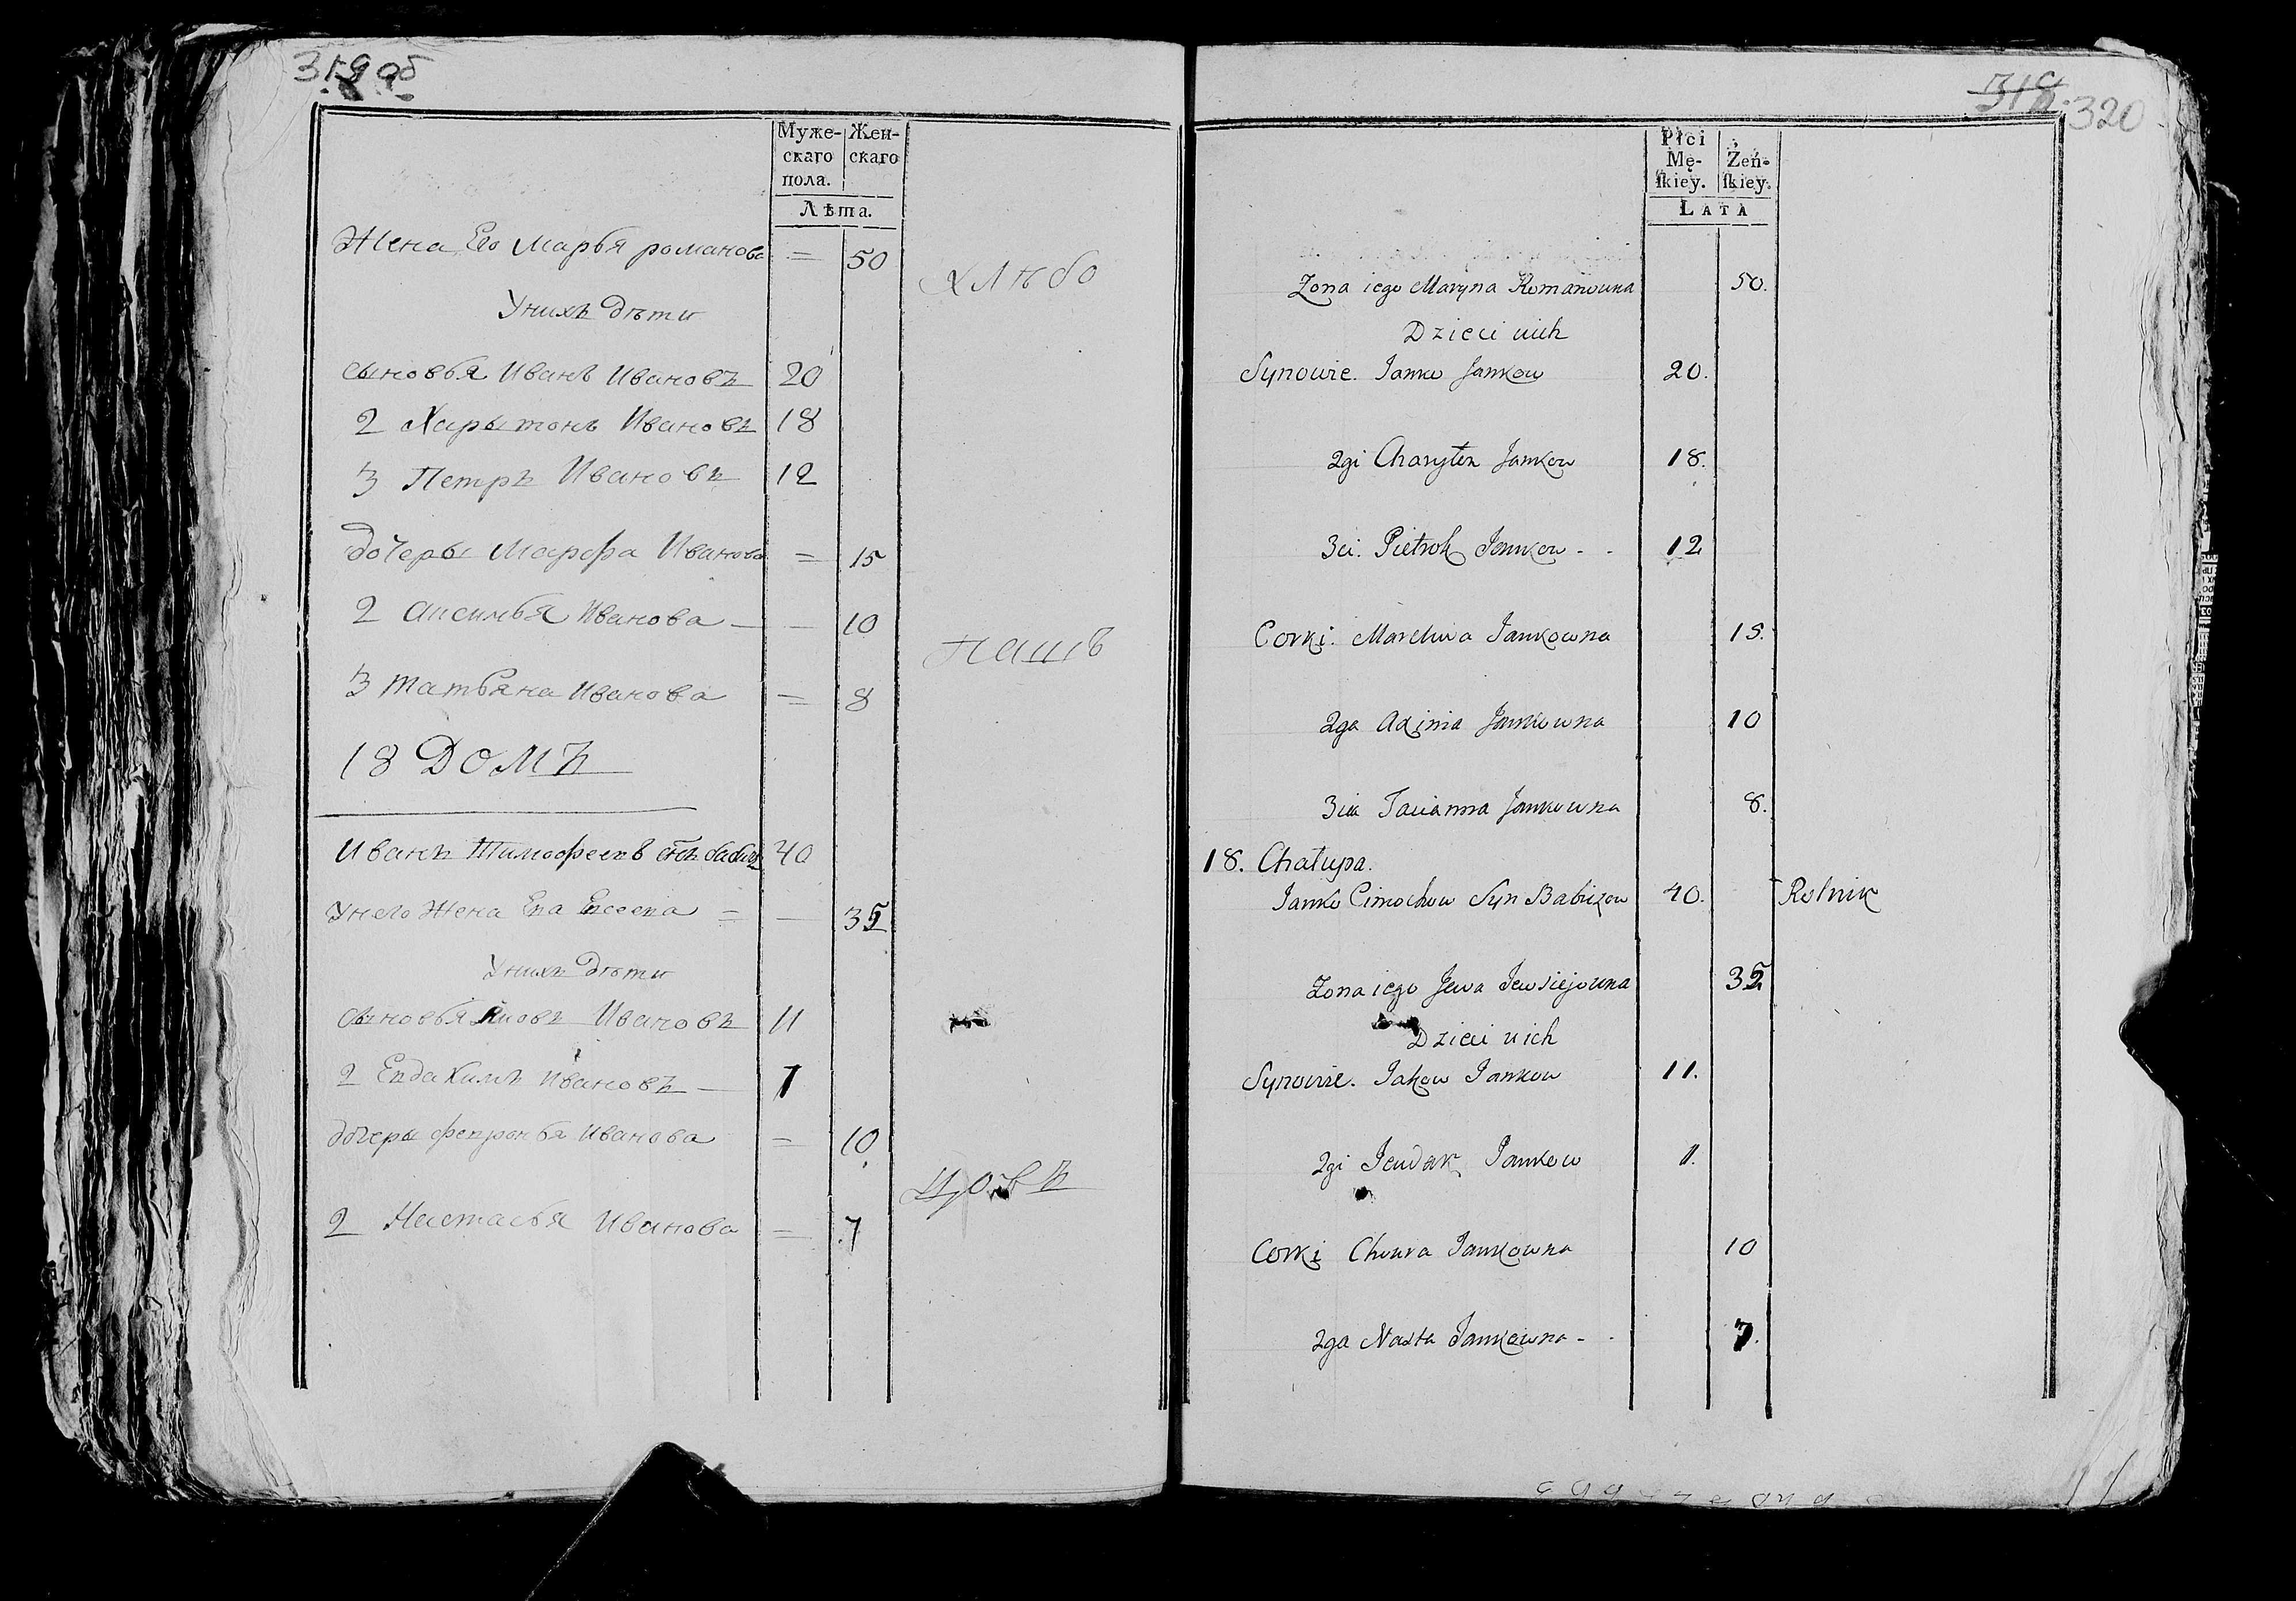 319 об
Муже-
скаго
пола.
Жен-
скаго
Лѣта.
Жена Его Марья романова = 50
хлѣбо
Унихъ дѣти
сыновья Иванъ Ивановъ 20
2 Харытонъ Ивановъ 18
3 Петръ Ивановъ 12
дочеры Марфа Иванова = 15
2 Аксинья Иванова — — 10
пашъ
3 татьяна Иванова = 8
18 Домъ
Иванъ Тимофеевъ снъ бабичъ 40
Унего Жена Ева Евсеева = — 35
Унихъ дѣти
сыновья Яковъ Ивановъ 11
2 Евдакимъ Ивановъ — 1
дочеры февронья Иванова = 10
цовъ
2 Настасья Иванова = 7
319 320
Płci
Mę-
ſkiey.
Żeń-
ſkiey.
LATA
Zona iego Maryna Romanowna 50.
Dzieci uich
Synowie. Janko Jankow 20.
2gi Charyton Jankow 18.
3ci. Pietrok Jankow - - 12
Corki. Marchwa Jankowna 15.
2ga Axinia Jankowna 10
3cia Tacianna Jankowna 8.
18. Chałupa.
Janko Cimochow Syn Babiczow 40. Rolnik
Zona iego Jewa Jewsiejowna 35
Dzieci uich
Synowie. Jakow Jankow 11.
2gi Jeudak Jankow 1.
Corki Chowra Jankowna 10
2ga Nasta Jankowna - - 7.